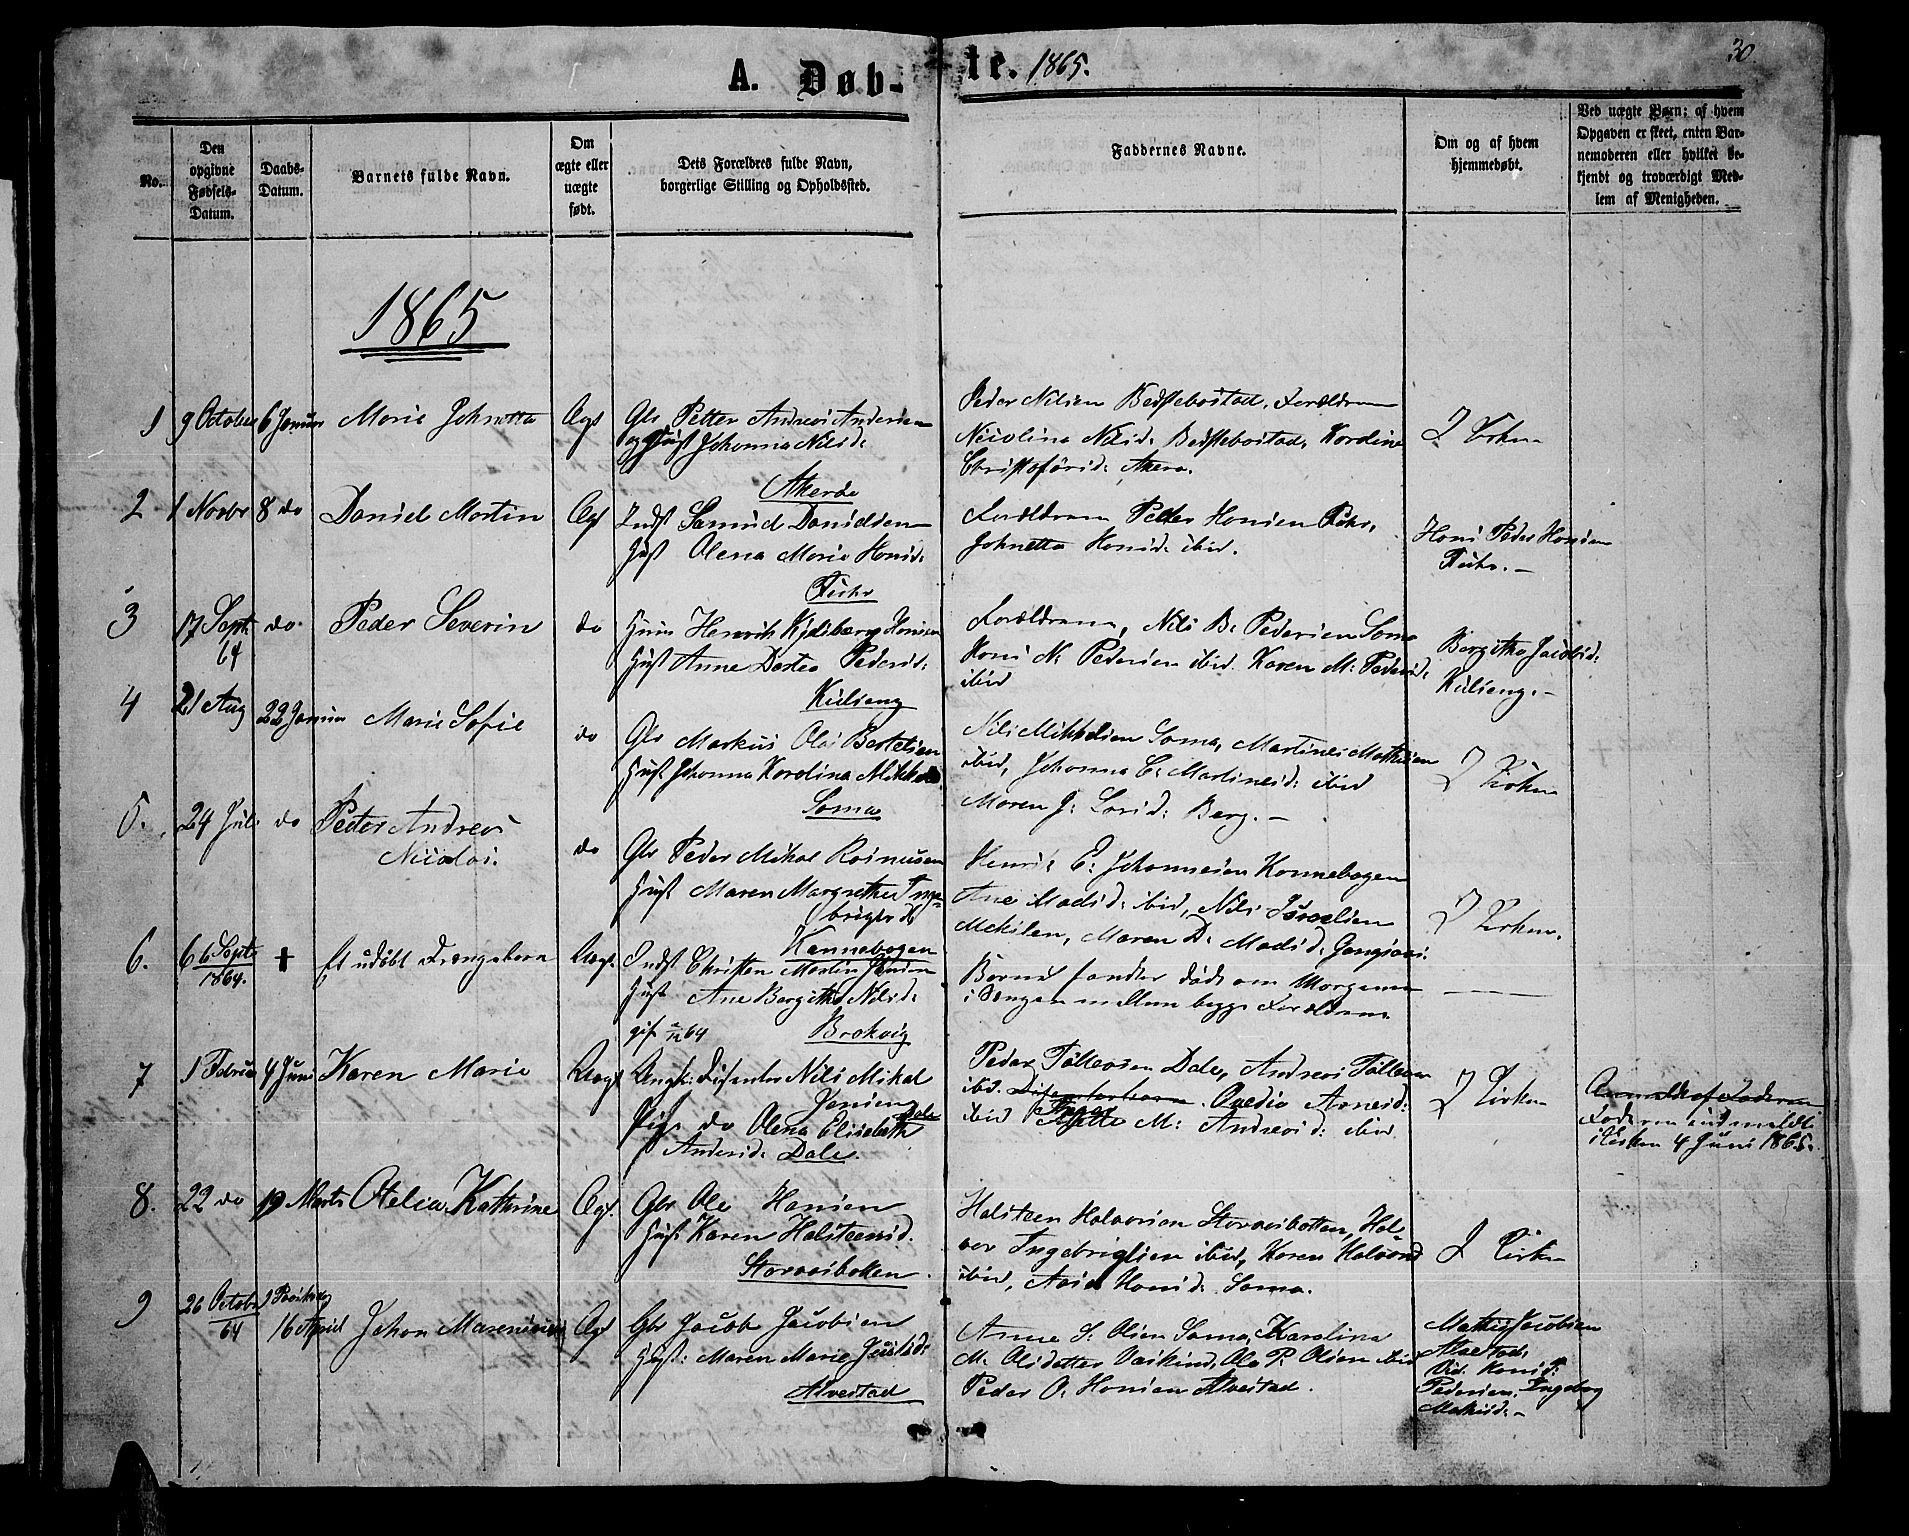 30.
A. Døb-
te. 1865.
No.
Den
opgivne
Fødsels-
Datum.
Daabs-
Datum.
Barnets fulde Navn.
Om
ægte eller
uægte
født.
Dets Forældres fulde Navn,
borgerlige Stilling og Opholdssted.
Faddernes Navne.
Om og af hvem
hjemmedøbt.
Ved uægte Børn; af hvem
Opgaven er skeet, enten Bar-
nemoderen eller hvilket be-
kjendt og troværdigt Med-
lem af Menigheden.
1865
1 9 October 6 Januar Marie Johnetta Ægt
Gbr Petter Andreas Andersen
og Hust Johanna Nilsd:
Akerøe
Peder Nilsen Bedstebostad, Forældrene
Nicolina Nilsd: Bedstebostad, Karoline
Christofersd: Akerø.
I Kirken
2 1 Novbr 8 do Daniel Martin Ægt
Indst Samuel Danielsen
Hust Olena Marie Hansd:
Fuhr
Forældrene Peder Hansen Fuhr,
Johnetta Hansd: ibid.
Hans Peder Hansen
Fuhr. -
3 17 Sept
64
do Peder Severin do
Huusm Henrik Kyldberg Hansen
Hust Anne Dortea Pedersd:
Kulseng
Forældrene, Nils B. Pedersen Soma
Hans N: Pedersen ibid. Karen M: Pedersd:
ibid
Bergithe Jacobsd:
Kulseng. -
4 21 Aug 22 Januar Marie Sofie do
Gbr Markus Olai Bertelsen
Hust Johanna Karolina Mikkelsd
Soma
Nils Mikkelsen Soma, Martines Mathisen
ibid, Johanna C: Martinesd: ibid
Maren J: Larsd: Berg. -
I Kirken
5. 24 Juli do Peder Andreas
Nicolai.
do
Gbr Peder Mikal Rasmussen
Hust Maren Margrethe Inge-
brigtsd:
Kannebogen
Henrik E: Johannesen Konnebogen
Ane Madsd: ibid, Nils Israelsen
Mekilen, Maren D: Madsd: Gangsaas:
I Kirken.
6. 6 Septr
1864.
+ Et udøbt Drengebarn Uægt.
Indst Christen Martin Jensen
Hust Ane Bergithe Nilsd:
gift 64 Brokvig
Barnet fandtes død om Morgenen
i Sengen mellem begge Forældrene
7 1 Februar 4 Juni Karen Marie Uægt
Ungk: Dissenter Nils Mikal
Jensen Dale
Pige do Olena Elisabeth
Andersd: Dale.
Peder Tollevsen Dale, Andreas Tollevsen
ibid. Dissenterbarn. Ovedia Arnesd:
ibid Inger M: Andreasd: ibid
I Kirken
Anmeldt af Faderen
Faderen indmeldt
i Kirken 4 Juni 1865.
8. 22 do 19 Marts Otelia Kathrine Ægt.
Gbr Ole Hansen
Hust Karen Halsteensd.
Storvasbotten
Halsteen Halvorsen Storvasbotten, Hal-
vor Ingebrigtsen ibid, Karen Halvorsd
ibid, Hansd: Soma.
I Kirken
9 26 October
64
1 Paaskedag
16 April
Johan Mareniusen Ægt
Gbr Jacob Jacobsen
Hust: Maren Marie Justsd:
Alvestad
Anne S: Olsen Soma, Karolina
M: Olsdatter Vaskind, Ole P: Olsen ibid
Peder O: Hansen Alvestad.
Mathis Jacobsen
Alvestad,
Vid: Hansd:
Pedersen, Ingeborg
Mathisd: -